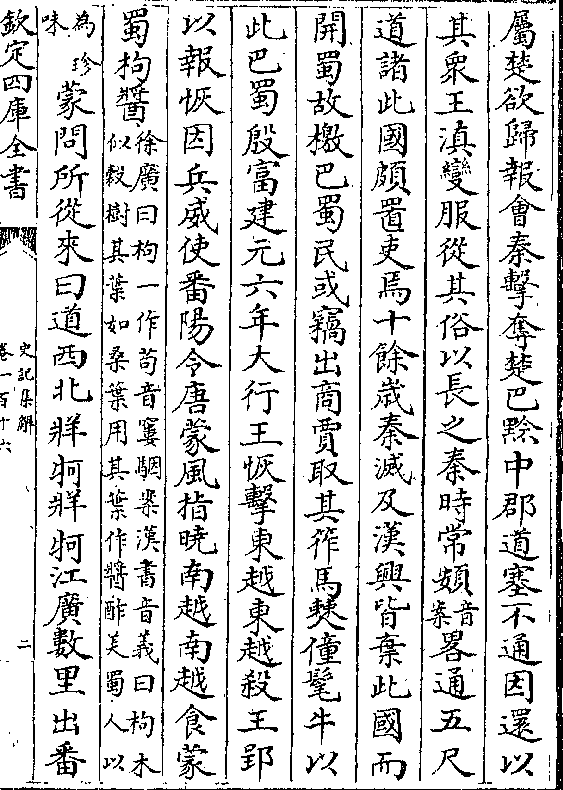 屬楚欲歸報會秦擊奪楚巴黔中郡道塞不通因還以
其衆王滇變服從其俗以長之秦時常頞音案畧通五尺
道諸此國頗置吏焉十餘歲秦滅及漢興皆棄此國而
開蜀故檄巴蜀民或竊出商賈取其筰馬僰僮髦牛以
此巴蜀殷富建元六年大行王恢擊東越東越殺王郢
以報恢因兵威使番陽令唐蒙風指曉南越南越食蒙
蜀枸醬徐廣曰枸一作蒟音窶駰案漢書音義曰枸木
似榖樹其葉如桑葉用其葉作醬酢美蜀人以
為珍味蒙問所從來曰道西北牂牁牂牁江廣數里出番
欽定四庫全書
史記集解
卷一百十六
二